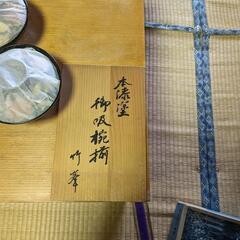 本漆塗
御吸椀揃
竹峯